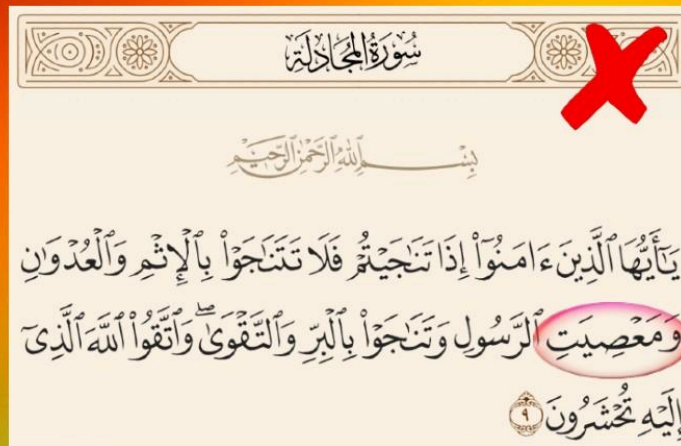 سُورَةُ المُجَادلَةِ
بِسْمِ اللَّهِ الرَّحْمَٰنِ الرَّحِيمِ
يَٰٓأَيُّهَا ٱلَّذِينَ ءَامَنُوٓاْ إِذَا تَنَٰجَيۡتُمۡ فَلَا تَتَنَٰجَوۡاْ بِٱلۡإِثۡمِ وَٱلۡعُدۡوَٰنِ
وَمَعۡصِيَتِ ٱلرَّسُولِ وَتَنَٰجَوۡاْ بِٱلۡبِرِّ وَٱلتَّقۡوَىٰۖ وَٱتَّقُواْ ٱللَّهَ ٱلَّذِيٓ
إِلَيۡهِ تُحۡشَرُونَ ٩